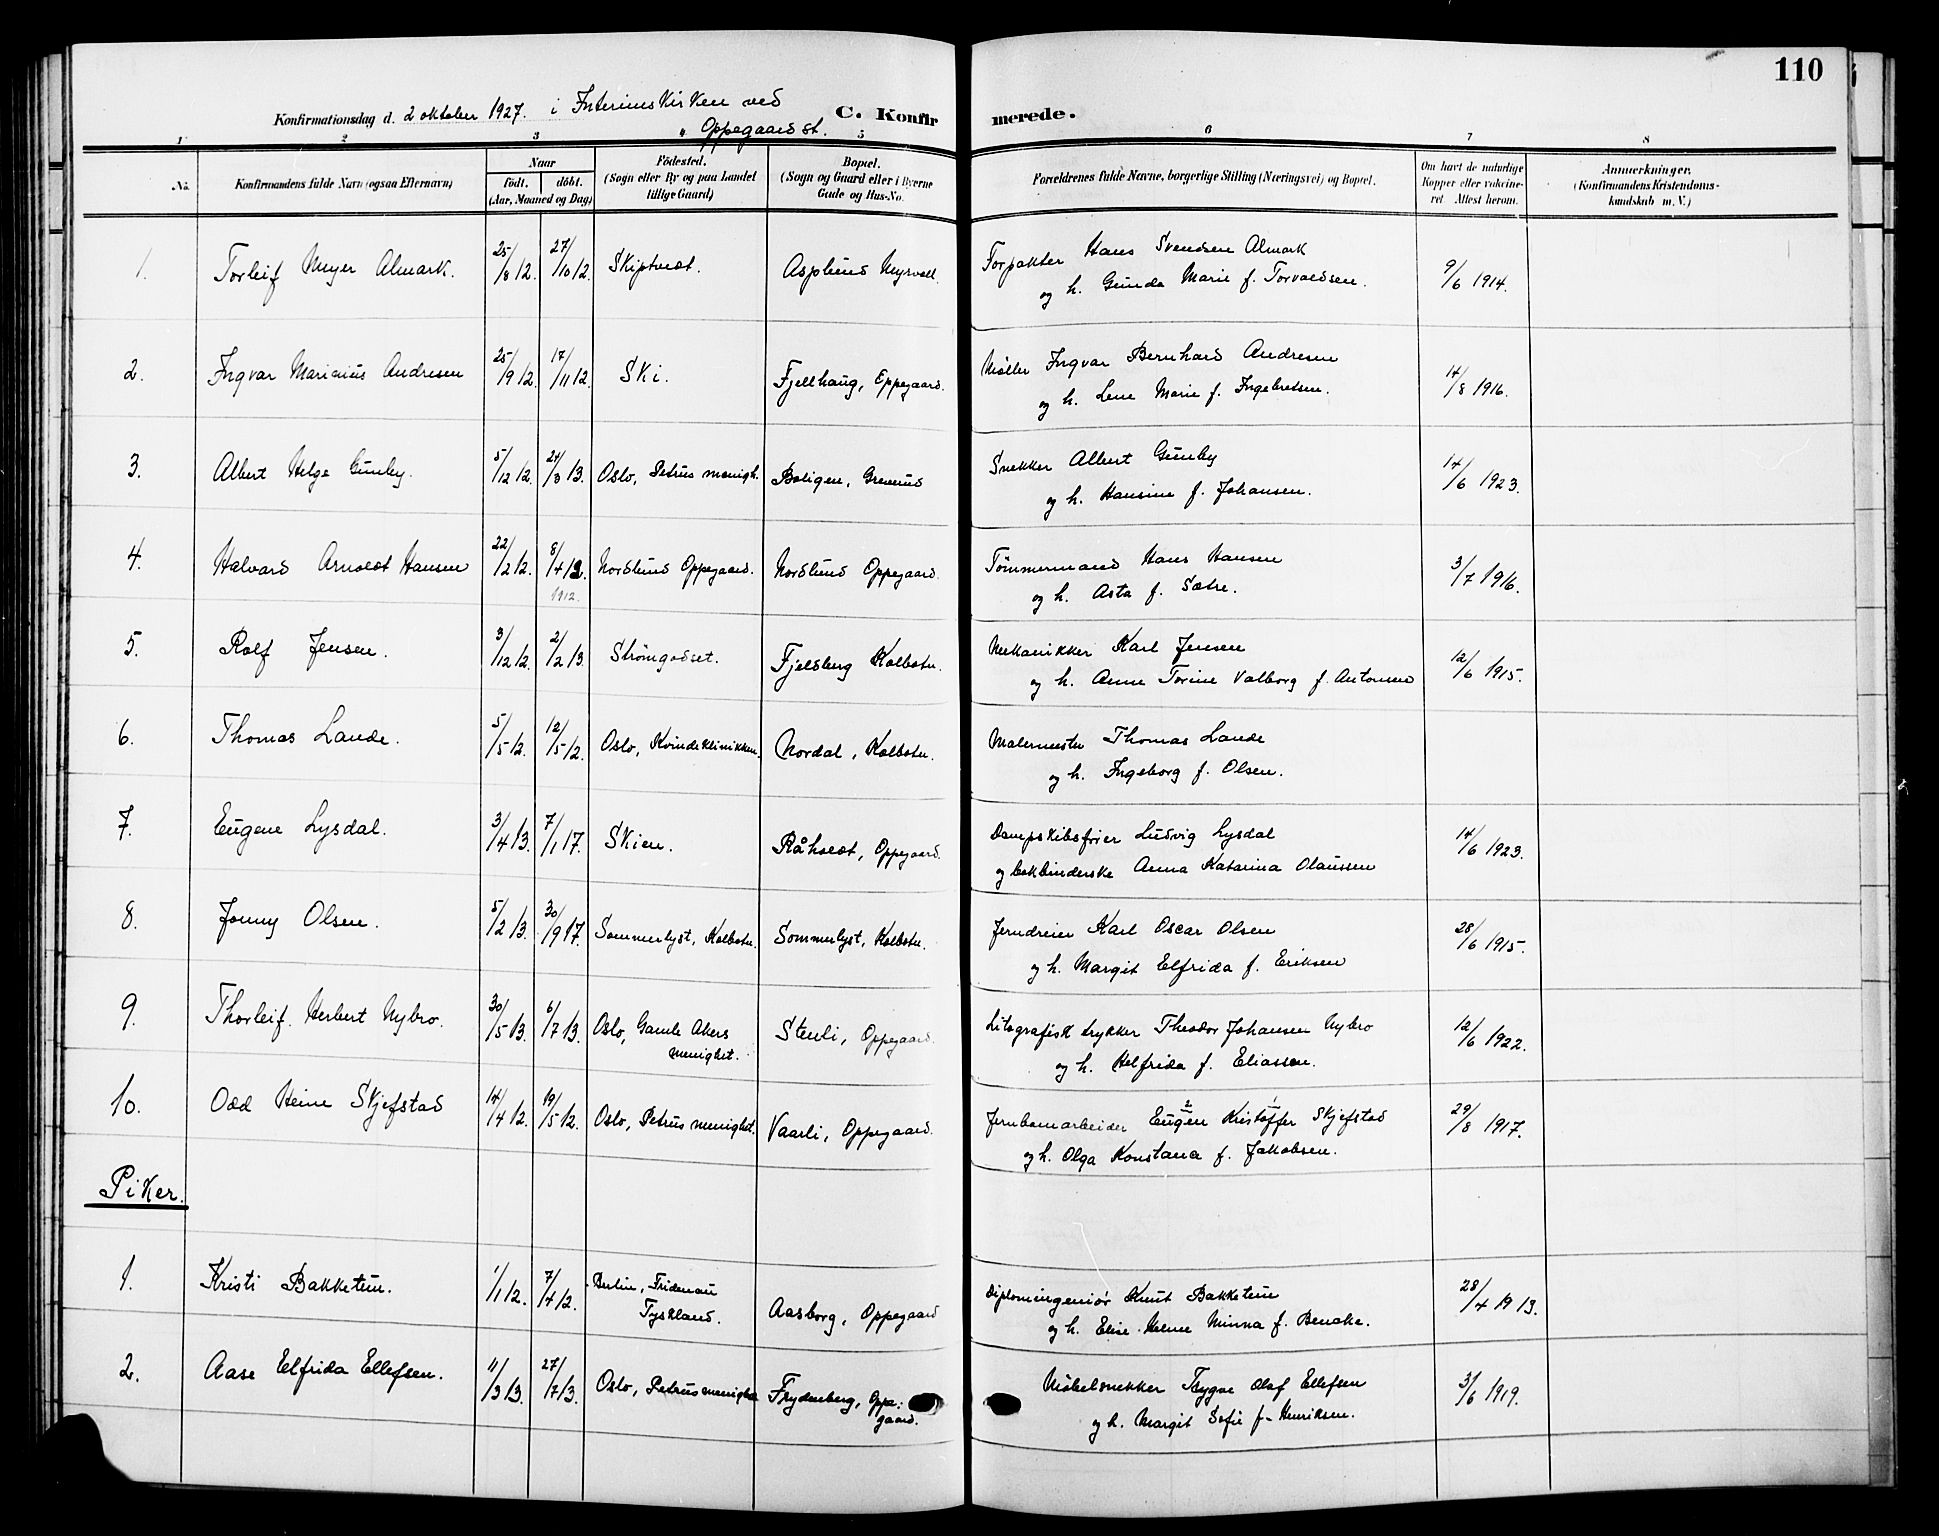 110
Konfirmationsdag d. 2 oktober 1927. i Interimskirken ved
Oppegaard st.
C. Konfirmerede.
1 2 3 4 5 6 7 8
No. Konfirmandens fulde Navn (ogsaa Efternavn) Naar födt. döbt. (Aar, Maaned og Dag) Födested. (Sogn eller By og paa Landet tillige Gaard) Bopæl. (Sogn og Gaard eller i Byerne Gade og Hus-No. Forældrenes fulde Navne, borgerlige Stilling (Næringsvei) og Bopæl. Om havt de naturlige Kopper eller vakcineret Attest herom. Anmærkninger. (Konfirmandens Kristendomskundskab m. V.)
1. Torleif Meyer Almark. 25/8 12. 27/10 12. Skiptvedt. Asplund Myrvoll. Forpakter Hans Svendsen Almark
og h. Gunda Marie f. Torvaldsen. 9/6 1914.
2. Ingvar Marinius Andresen 25/9 12. 17/11 12. Ski. Fjellhaug, Oppegaard. Møller Ingvar Bernhard Andresen
og h. Lene Marie f. Ingebretsen. 14/8 1916.
3. Albert Helge Gunby. 5/12 12. 24/3 13. Oslo, Petrus menigh. Boligen, Grenrud Snekker Albert Gunby
og h. Hansine f. Johansen. 14/6 1923.
4. Halvard Arnoldt Hansen 22/2 12. 8/4 12. Nordlund Oppegaard. Nordlund Oppegaard. Tømmermand Hans Hansen
1912.
og h. Asta f. Sætre. 3/7 1916.
5. Rolf Jensen. 3/12 12. 2/2 13. Strömgodset. Fjelsberg Kolbotn. Mekanikker Karl Jensen
og h. Anne Torine Valborg f. Antonsen 12/6 1915.
6. Thomas Lande. 5/5 12. 12/5 12. Oslo, Kvindeklinikken. Nordal, Kolbotn. Malermester Thomas Lande
og h. Ingeborg f. Olsen.
7. Eugene Lysdal. 3/4 13. 7/1 17. Skien. Råholdt, Oppegaard. Dampskibsfrier Ludvig Lysdal
og bokbinderske Anna Katarina Olaussen 14/6 1923.
8. Jonny Olsen. 5/2 13. 30/9 17. Sommerlyst, Kolbotn. Sommerlyst, Kolbotn. Jerndreier Karl Oscar Olsen
og h. Margit Elfrida f. Eriksen 28/6 1915.
9. Thorleif Herbert Nybro. 30/5 13. 6/7 13. Oslo, Gamle Akers menighet. Stenli, Oppegaard. Litografisk trykker Theodor Johansen Nybro
og h. Helfrida f. Eliassen. 12/6 1922.
10. Odd Heine Skjefstad 14/4 12. 19/5 12. Oslo, Petrus menighet. Vaarli, Oppegaard. Jernbanarbeider Eugen 2 Kristoffer 1 Skjefstad
og h. Olga Konstance f. Jakobsen. 29/8 1917.
Piker.
1. Kristi Bakketun. 1/1 12. 7/4 12. Berlin, Fridenau Tyskland. Aasborg, Oppegaard Diplomingeniør Knut Bakketun
og h. Elise Helene Minna f. Benake. 28/4 1913.
2. Aase Elfrida Ellefsen. 11/3 13. 27/7 13. Oslo, Petrus menighet Frydenberg, Oppegaard. Møbelsnekker Trygve Olaf Ellefsen
og h. Margit Sofie f. Henriksen. 3/6 1919.